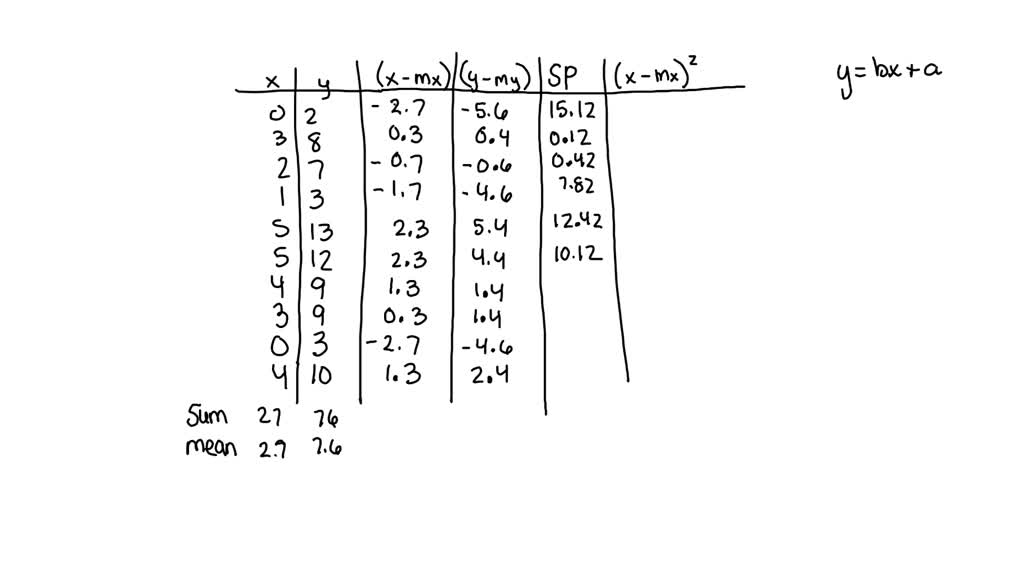 x y (x-mx) (y-my) SP (x-mx)² y=bx+a
0 2 -2.7 -5.6 15.12
3 8 0.3 0.4 0.12
2 7 -0.7 -0.6 0.42
1 3 -1.7 -4.6 7.82
5 13 2.3 5.4 12.42
5 12 2.3 4.4 10.12
4 9 1.3 1.4
3 9 0.3 1.4
0 3 -2.7 -4.6
4 10 1.3 2.4
Sum 27 76
mean 2.7 7.6